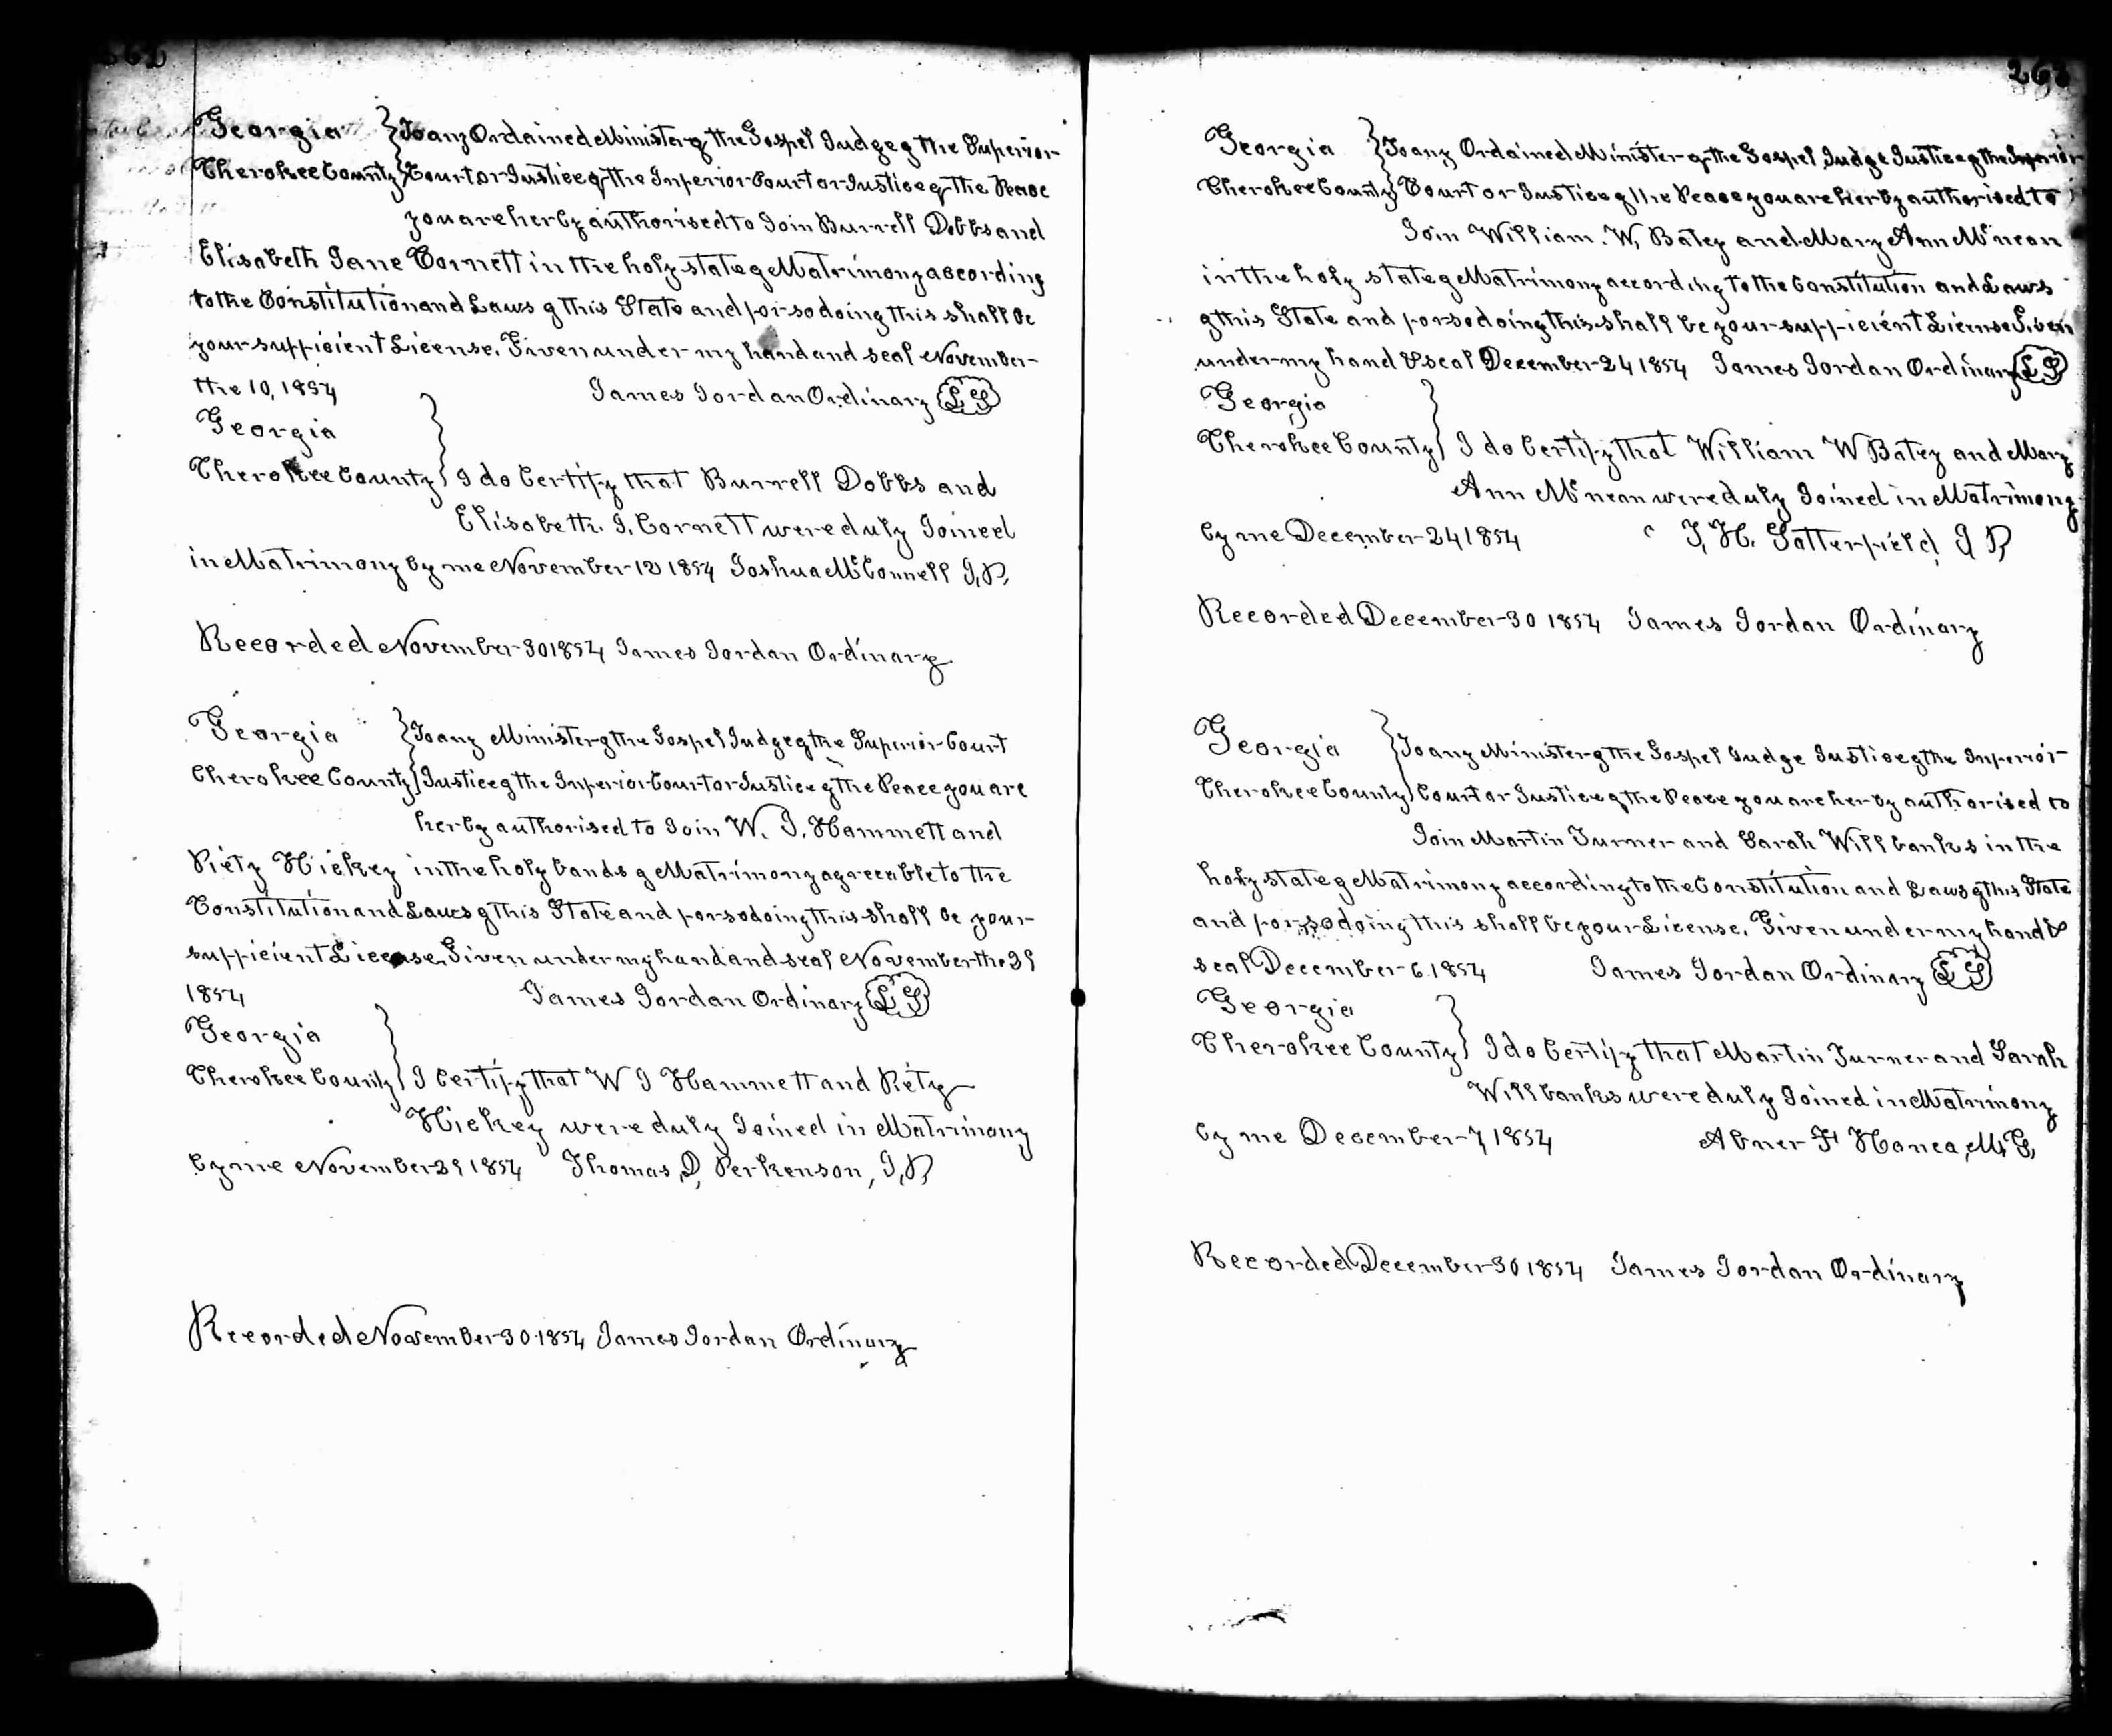 262
Georgia } To any Ordained Minister of the Gospel Judge of the Superior
Cherokee County } Court or Justice of the Inferior Court or Justice of the Peace
you are herby authorised to Join Burrell Dobbs and
Elisabeth Jane Cornett in the holy state of Matrimony according
to the Constitution and Laws of this State and for so doing this shall be
your sufficient License. Given under my hand and seal November
the 10, 1854 James Jordan Ordinary LS
Georgia
Cherokee County } I do Certify that Burrell Dobbs and
Elisabeth. J. Cornett were duly Joined
in Matrimony by me November 12 1854 Joshua McConnell J,P,
Recorded November 30 1854 James Jordan Ordinary
Georgia } To any Minister of the Gospel Judge of the Superior Court
Cherokee County } Justice of the Inferior Court or Justice of the Peace you are
herby authorised to Join W. J. Hammett and
Piety Hickey in the holy bands of Matrimony agreeable to the
Constitution and Laws of this State and for so doing this shall be your
sufficient License. Given under my hand and seal November the 29
1854 James Jordan Ordinary LS
Georgia
Cherokee County } I Certify that W J Hammett and Piety
Hickey were duly Joined in Matrimony
by me November 29 1854 Thomas, D, Perkenson, J,P,
Recorded November 30 1854 James Jordan Ordinary
263
Georgia } To any Ordained Minister of the Gospel Judge Justice of the Inferior
Cherokee County } Court or Justice of the Peace you are herby authorised to
Join William. W, Batey and Mary Ann Mcnean
in the holy state of Matrimony according to the Constitution and Laws
of this State and for so doing this shall be your sufficient License Given
under my hand & seal December 24 1854 James Jordan Ordinary LS
Georgia
Cherokee County } I do Certify that William W Batey and Mary
Ann Mcnean were duly Joined in Matrimony
by me December 24 1854 J, H. Satterfield J P
Recorded December 30 1854 James Jordan Ordinary
Georgia } To any Minister of the Gospel Judge Justice of the Inferior
Cherokee County } Court or Justice of the Peace you are herby authorised to
Join Martin Turner and Sarah Willbanks in the
holy state of Matrimony according to the Constitution and Laws of this State
and for so doing this shall be your License. Given under my hand &
seal December 6 1854 James Jordan Ordinary LS
Georgia
Cherokee County } I do Certify that Martin Turner and Sarah
Willbanks were duly Joined in Matrimony
by me December 7 1854 Abner F Honea, M,G,
Recorded December 30 1854 James Jordan Ordinary